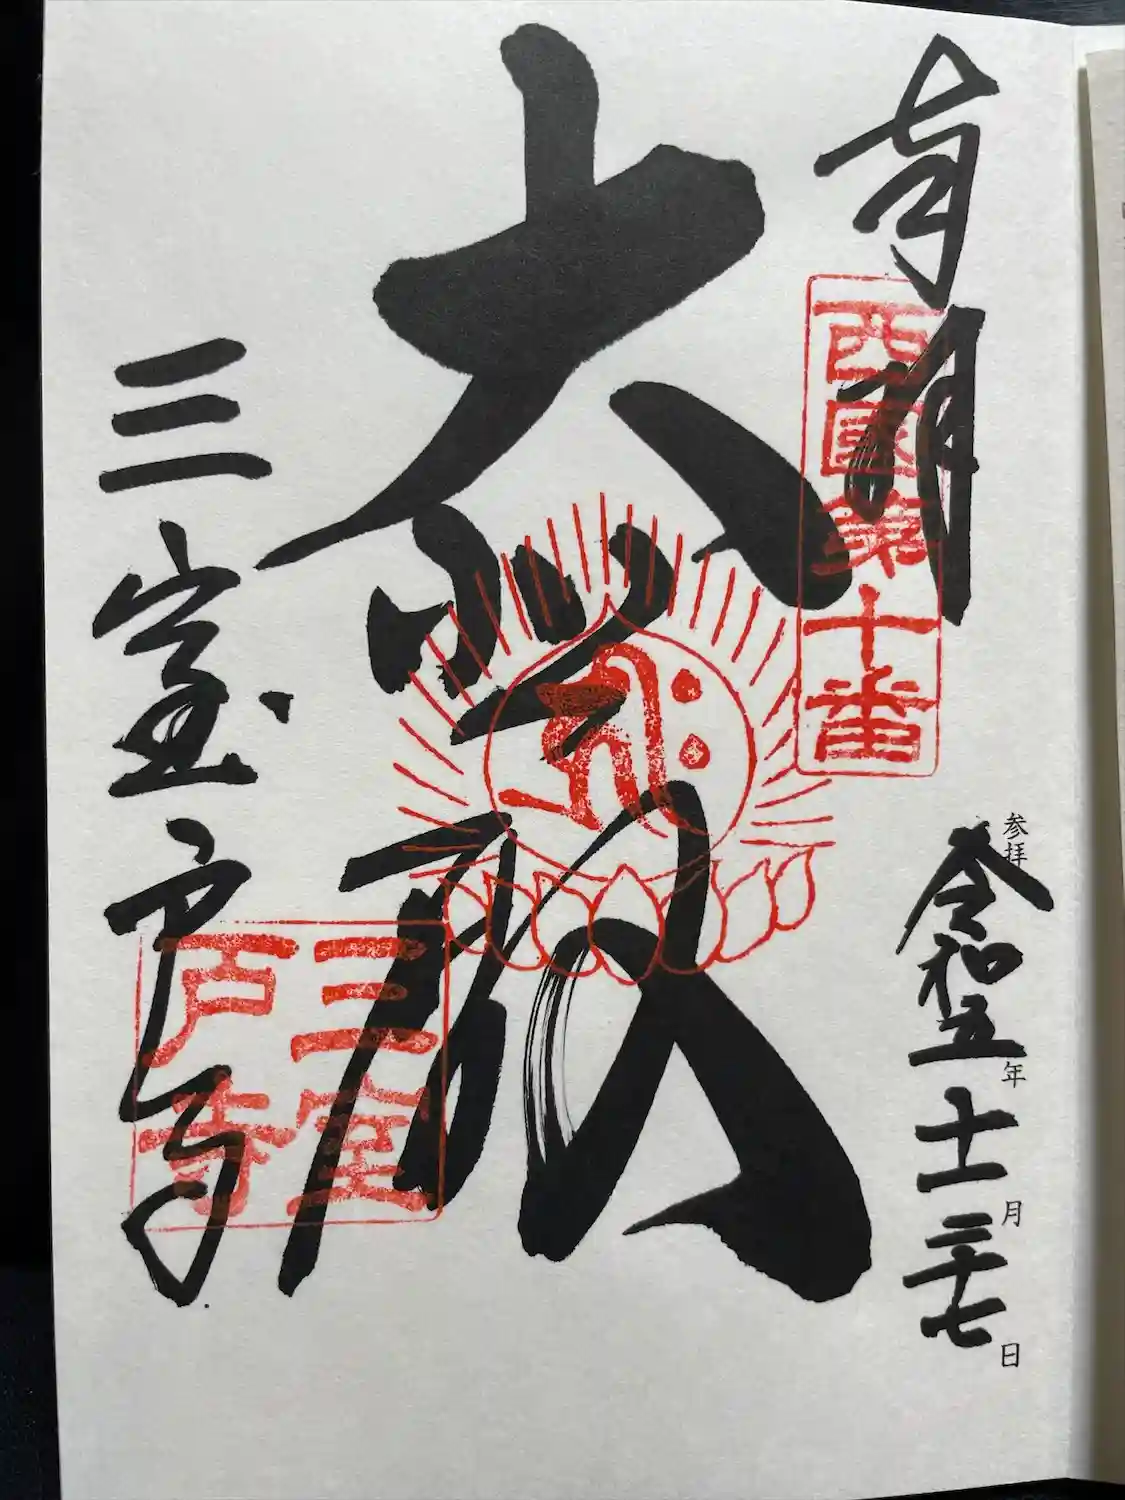 奉拝
西國第十番
参拝 令和五年十一月二十七日
大悲殿
三室戸寺
三室
戸寺